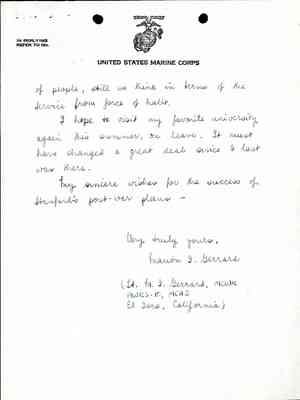 IN REPLYING
REFER TO NO.
UNITED STATES MARINE CORPS
of people, still we think in terms of the
service from force of habit.
I hope to visit my favorite university
again this summer, on leave. It must
have changed a great deal since I last
was there.
My sincere wishes for the success of
Stanford's post-war plans —
Very truly yours,
Marion I. Gerrard
(Lt. M. I. Gerrard, MCWR
MCAS
El Toro, California)